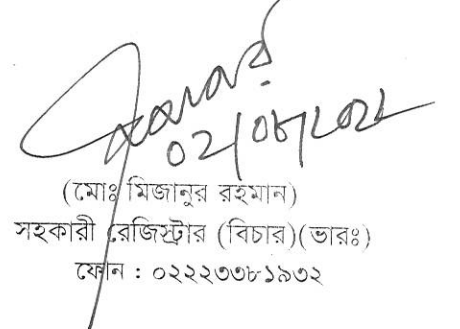 ০২/০৮/২০২২
(মোঃ মিজানুর রহমান)
সহকারী রেজিস্ট্রার (বিচার)(ভারঃ)
ফোন : ০২২২৩৩৮১৯৩২